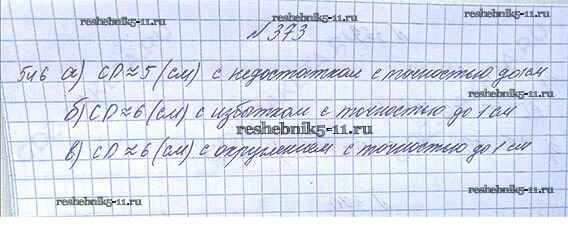 reshebnik5-11.ru
reshebnik5-11.ru
№373
546 а) CD≈5 (см) с недостатком с точностью до 1см
б) CD≈6 (см) с избытком с точностью до 1 см
reshebnik5-11.ru
в) CD≈6 (см) с округлением с точностью до 1 см
reshebnik5-11.ru
reshebnik5-11.ru